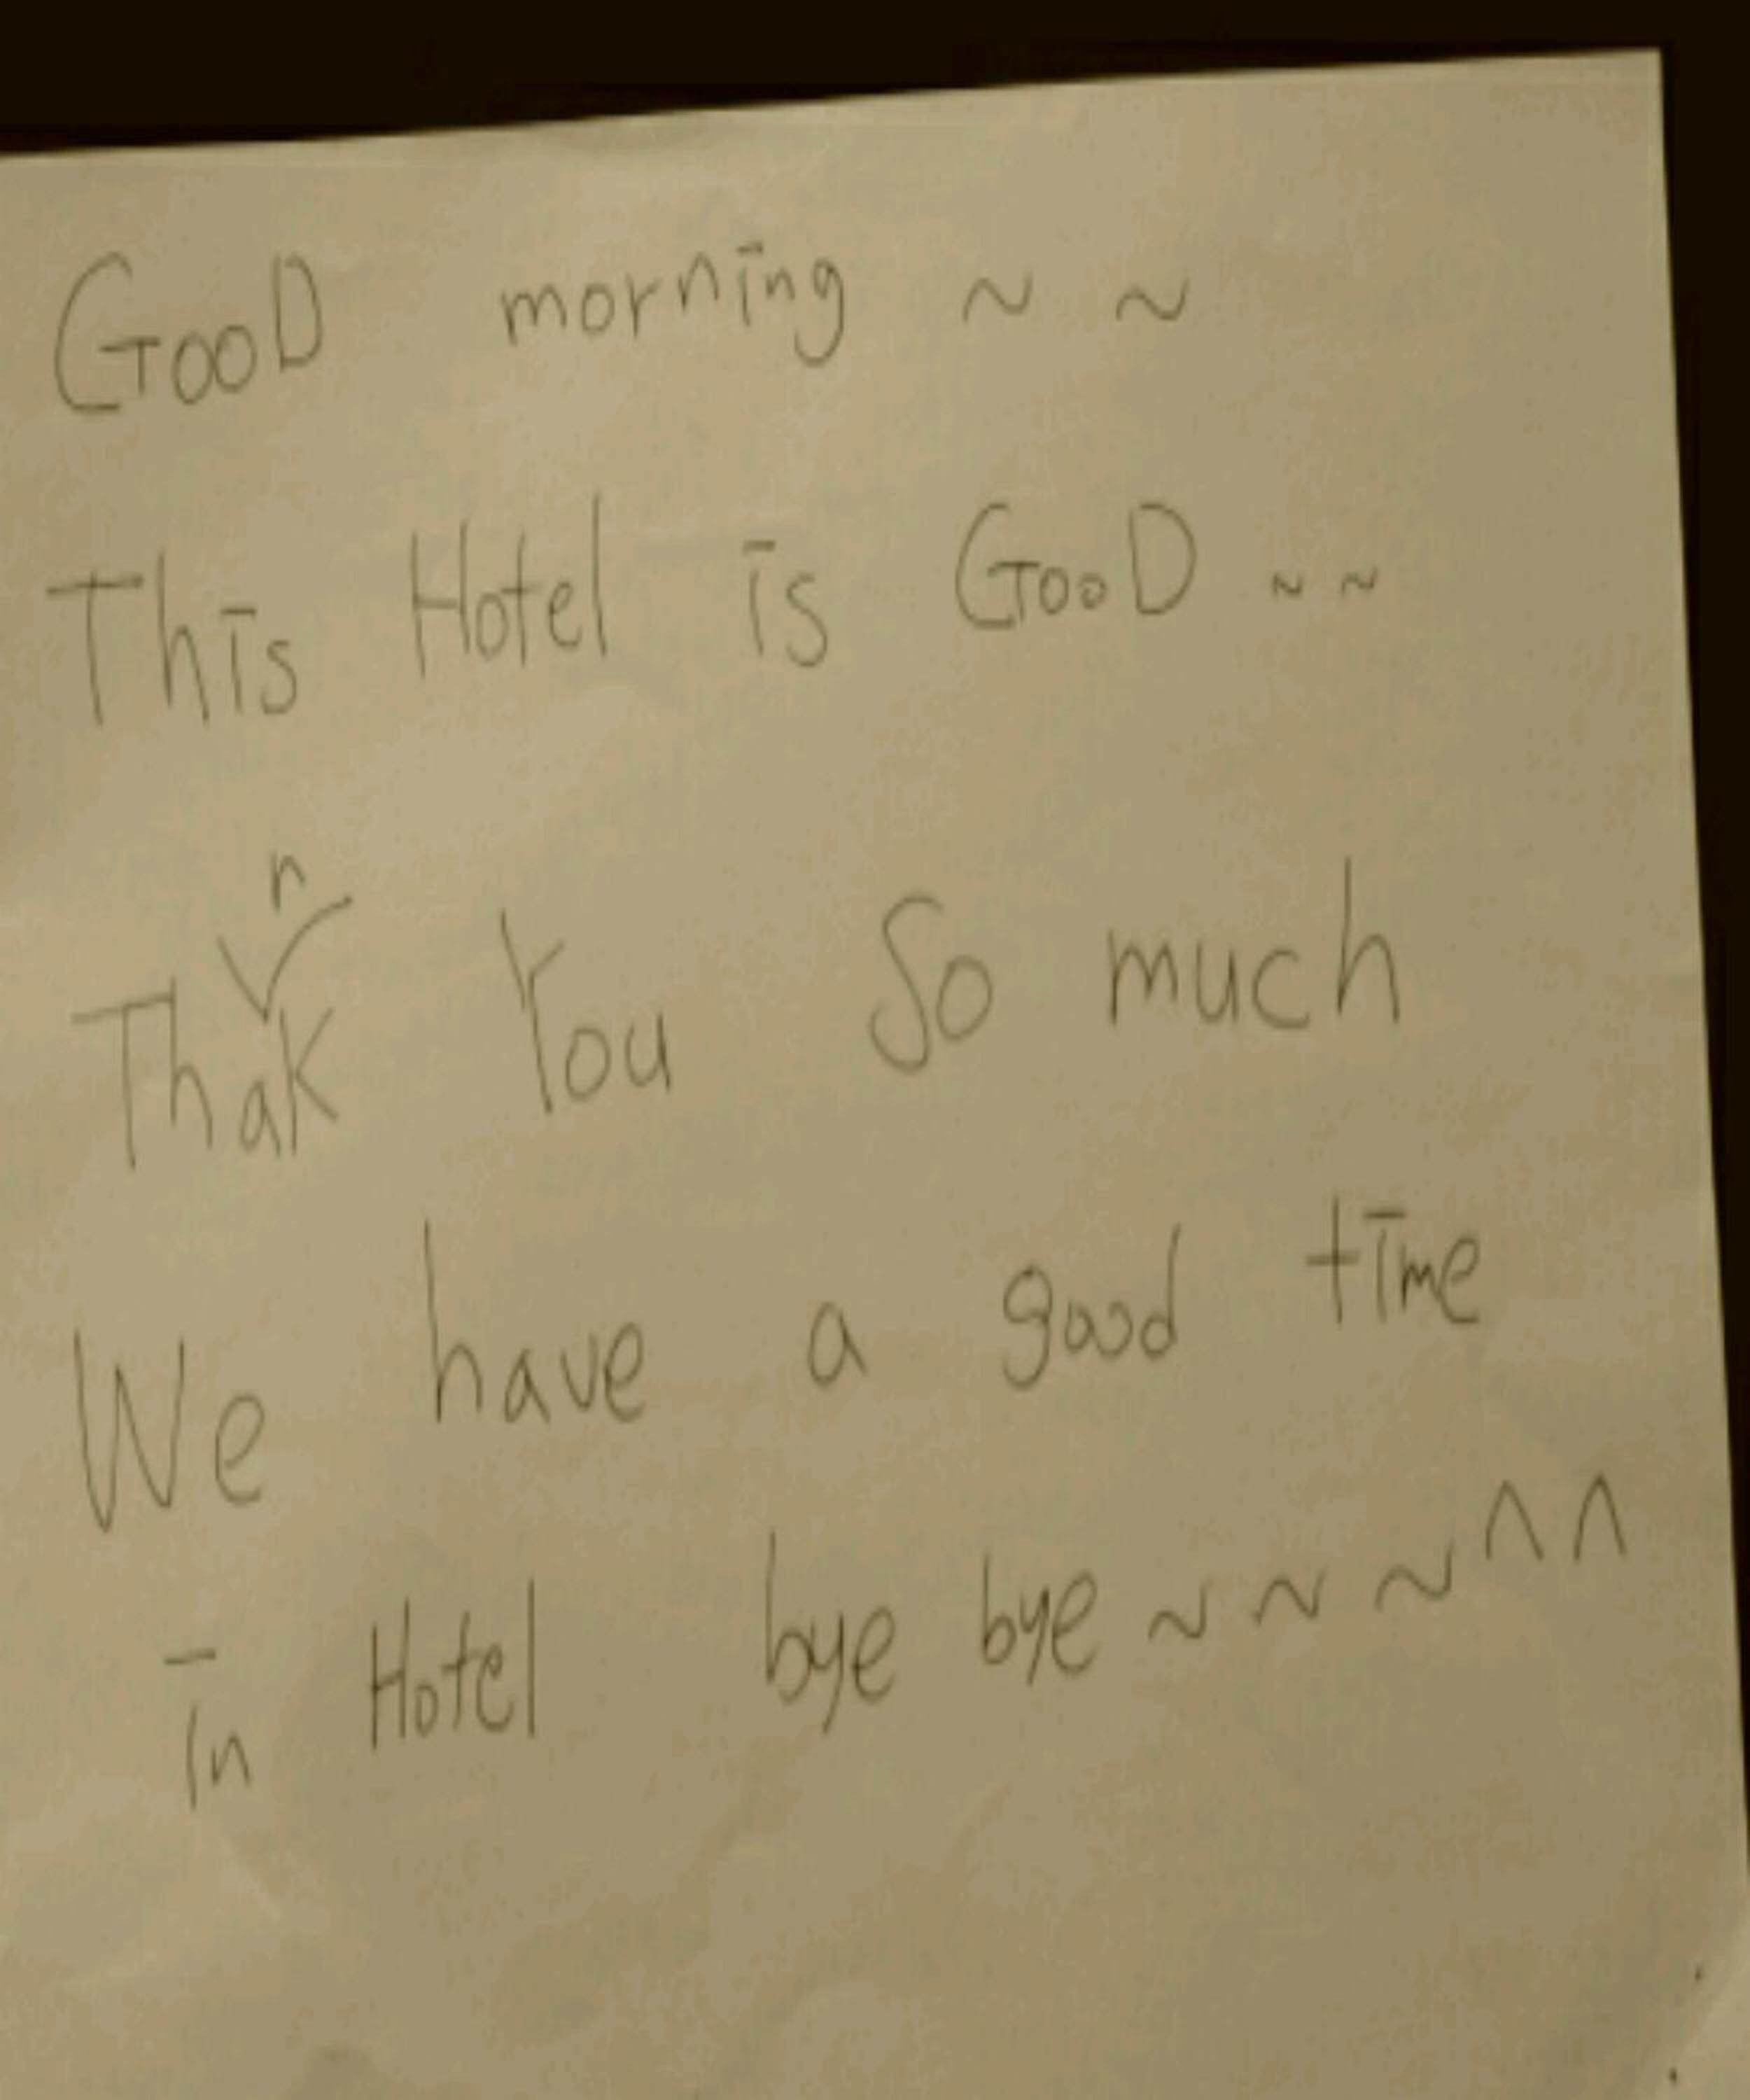 GooD morning ~ ~
This Hotel is GooD ~ ~
Thank You So much
We have a good time
in Hotel bye bye ~ ~ ~ ^^